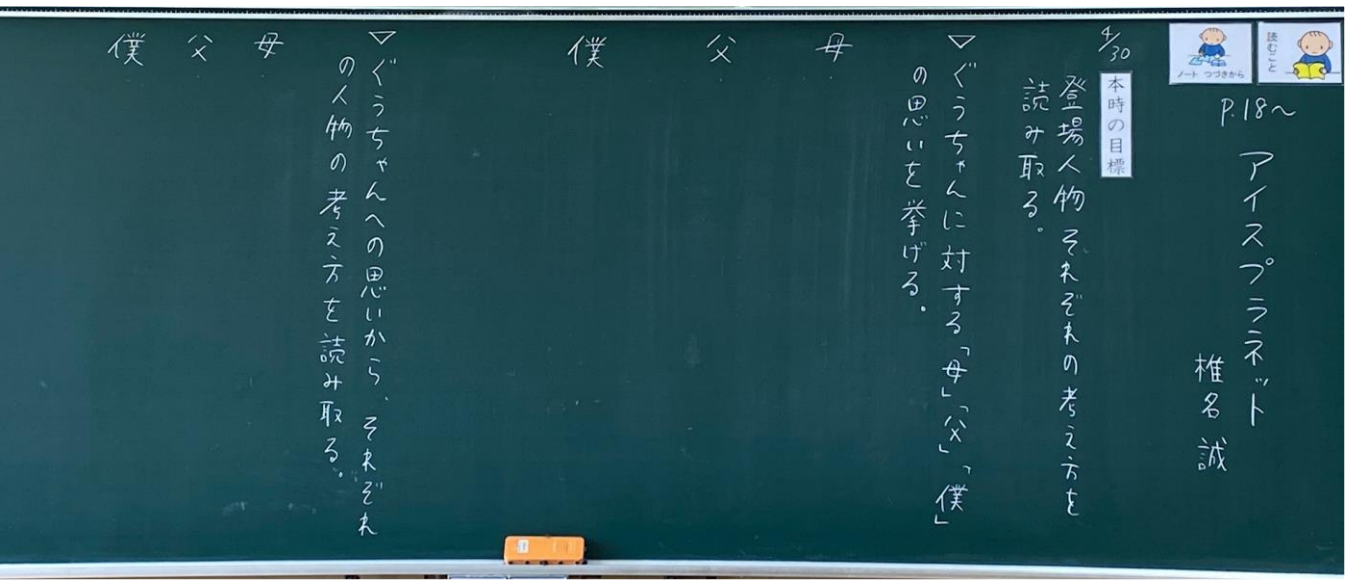 読むこと
ノート つづきから
P.18〜
アイスプラネット
椎名 誠
4/30
本時の目標
登場人物それぞれの考え方を
読み取る。
▽ぐうちゃんに対する「母」「父」「僕」
の思いを挙げる。
母
父
僕
▽ぐうちゃんへの思いから、それぞれ
の人物の考え方を読み取る。
母
父
僕